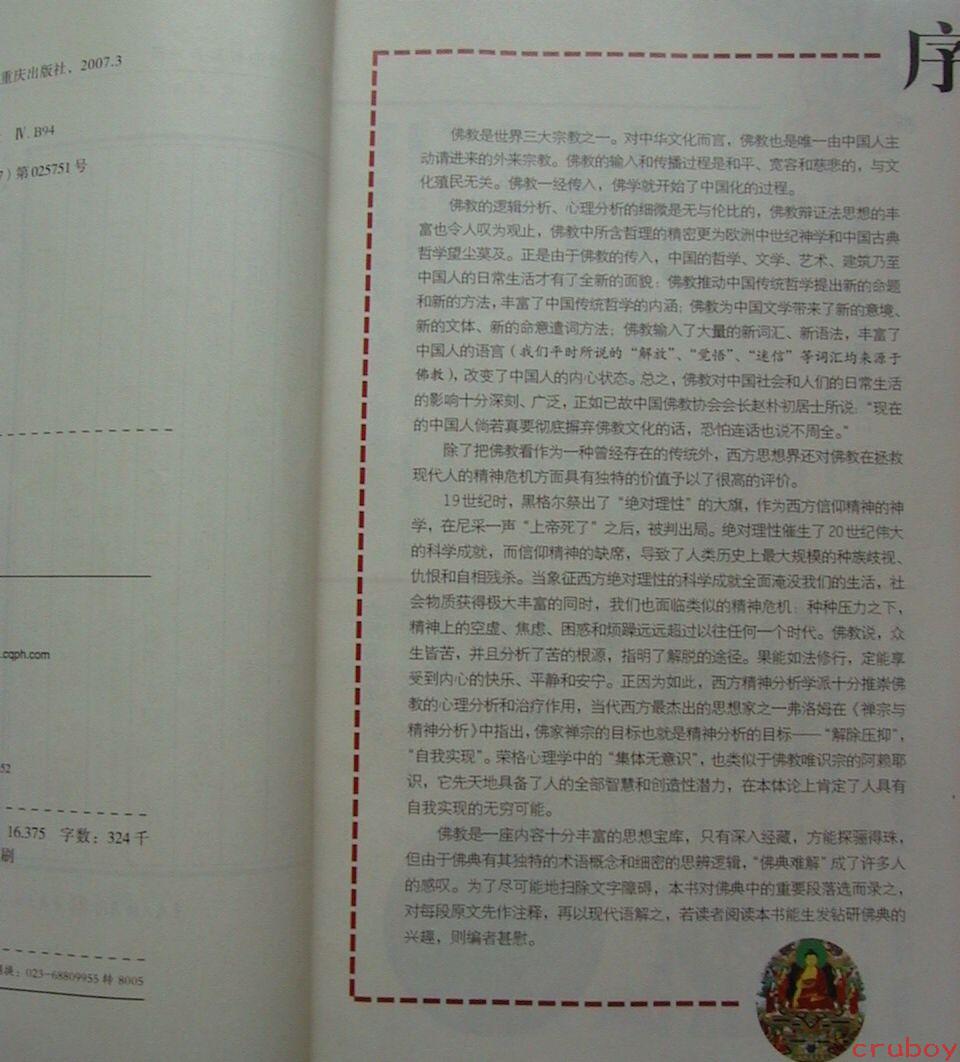 重庆出版社，2007.3
Ⅳ. B94
）第 025751 号
.cqph.com
52
16.375 字数：324 千
刷
换：023-68809955 转 8005
序
佛教是世界三大宗教之一。对中华文化而言，佛教也是唯一由中国人主
动请进来的外来宗教。佛教的输入和传播过程是和平、宽容和慈悲的，与文
化殖民无关。佛教一经传入，佛学就开始了中国化的过程。
佛教的逻辑分析、心理分析的细微是无与伦比的，佛教辩证法思想的丰
富也令人叹为观止，佛教中所含哲理的精密更为欧洲中世纪神学和中国古典
哲学望尘莫及。正是由于佛教的传入，中国的哲学、文学、艺术、建筑乃至
中国人的日常生活才有了全新的面貌：佛教推动中国传统哲学提出新的命题
和新的方法，丰富了中国传统哲学的内涵；佛教为中国文学带来了新的意境、
新的文体、新的命意遣词方法；佛教输入了大量的新词汇、新语法，丰富了
中国人的语言（我们平时所说的“解放”、“觉悟”、“迷信”等词汇均来源于
佛教），改变了中国人的内心状态。总之，佛教对中国社会和人们的日常生活
的影响十分深刻、广泛，正如已故中国佛教协会会长赵朴初居士所说：“现在
的中国人倘若真要彻底摒弃佛教文化的话，恐怕连话也说不周全。”
除了把佛教看作为一种曾经存在的传统外，西方思想界还对佛教在拯救
现代人的精神危机方面具有独特的价值予以了很高的评价。
19世纪时，黑格尔祭出了“绝对理性”的大旗，作为西方信仰精神的神
学，在尼采一声“上帝死了”之后，被判出局。绝对理性催生了20世纪伟大
的科学成就，而信仰精神的缺席，导致了人类历史上最大规模的种族歧视、
仇恨和自相残杀。当象征西方绝对理性的科学成就全面淹没我们的生活，社
会物质获得极大丰富的同时，我们也面临类似的精神危机：种种压力之下，
精神上的空虚、焦虑、困惑和烦躁远远超过以往任何一个时代。佛教说，众
生皆苦，并且分析了苦的根源，指明了解脱的途径。果能如法修行，定能享
受到内心的快乐、平静和安宁。正因为如此，西方精神分析学派十分推崇佛
教的心理分析和治疗作用，当代西方最杰出的思想家之一弗洛姆在《禅宗与
精神分析》中指出，佛家禅宗的目标也就是精神分析的目标——“解除压抑”，
“自我实现”。荣格心理学中的“集体无意识”，也类似于佛教唯识宗的阿赖耶
识，它先天地具备了人的全部智慧和创造性潜力，在本体论上肯定了人具有
自我实现的无穷可能。
佛教是一座内容十分丰富的思想宝库，只有深入经藏，方能探骊得珠，
但由于佛典有其独特的术语概念和细密的思辨逻辑，“佛典难解”成了许多人
的感叹。为了尽可能地扫除文字障碍，本书对佛典中的重要段落选而录之，
对每段原文先作注释，再以现代语解之，若读者阅读本书能生发钻研佛典的
兴趣，则编者甚慰。
cruboy